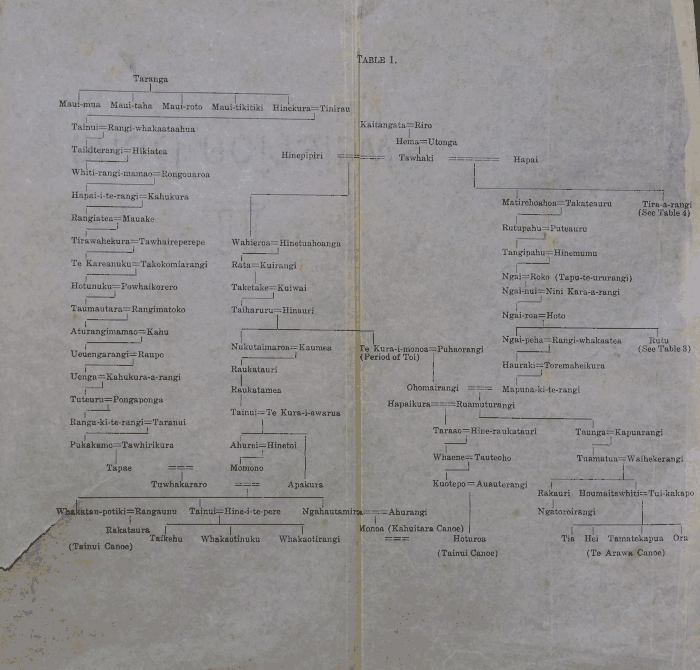 TABLE I.
Taranga
Maui-mua Maui-taha Maui-roto Maui-tikitiki Hinekura=Tinirau
Kaitangata=Riro
Tainui=Rangi-whakaataahua
Hema=Utonga
Taikiterangi=Hikiatea
Hinepipiri ===== Tawhaki ===== Hapai
Whiti-rangi-mamao=Rongouaroa
Hapai-i-te-rangi=Kahukura
Matirehoahoa=Takateauru Tira-a-rangi
(See Table 4)
Rangiatea=Mauake
Rutupahu=Puteauru
Tirawahekura=Tawhaireperepe Wahieroa=Hinetuahoanga
Tangipahu=Hinemumu
Te Kareanuku=Takokomiarangi Rata=Kuirangi
Ngai=Roko (Tapu-te-ururangi)
Hotunuku=Powhaikorero Taketake=Kuiwai
Ngai-nui=Nini Kara-a-rangi
Taumautara=Rangimatoko Taiharuru=Hinauri
Ngai-roa=Hoto
Aturangimamao=Kahu
Ngai-peha=Rangi-whakaatea Rutu
(See Table 3)
Nukutaimaroa=Kaumea Te Kura-i-monoa=Puhaorangi
(Period of Toi)
Ueuengarangi=Raupo
Hauraki=Toremaheikura
Raukatauri
Uenga=Kahukura-a-rangi
Ohomairangi === Mapuna-ki-te-rangi
Raukatamea
Tuteuru=Pongaponga
Hapaikura===Ruamuturangi
Tainui=Te Kura-i-awarua
Ranga-ki-te-rangi=Taranui
Taraao=Hine-raukatauri Taunga=Kapuarangi
Pukakamo=Tawhirikura Ahurei=Hinetoi
Whaene=Tauteoho Tuamatua=Waihekerangi
Tapae === Momono
Tuwhakararo === Apakura
Kuotepo=Auauterangi
Rakauri Houmaitawhiti=Tui-kakapo
Whakatau-potiki=Rangaunu Tainui=Hine-i-te-pere Ngahautamira===Ahurangi
Ngatoroirangi
Rakataura
Monoa (Kahuitara Canoe)
Taikehu Whakaotinuku Whakaotirangi === Hoturoa
Tia Hei Tamatekapua Ora
(Tainui Canoe) (Tainui Canoe) (Te Arawa Canoe)